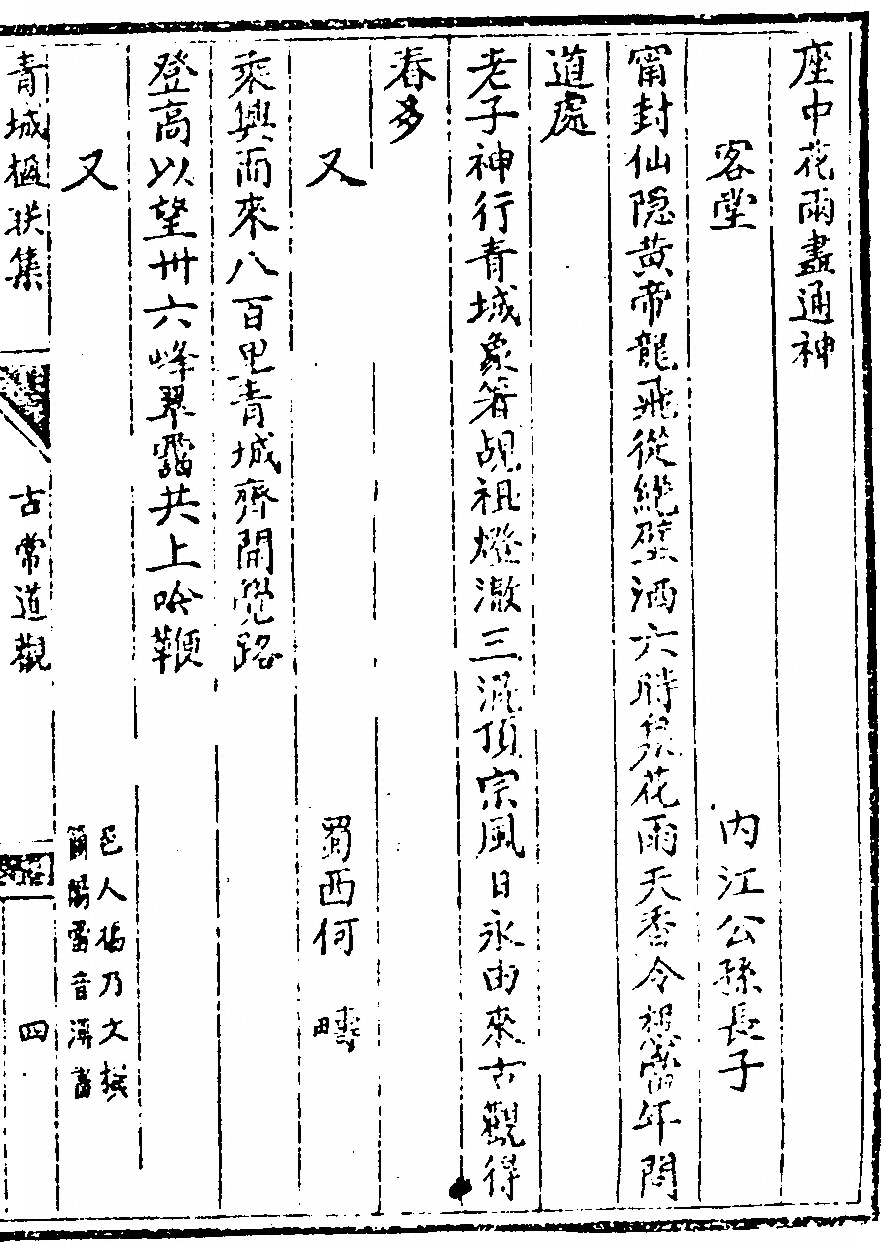 座中花雨盡通神
客堂　內江公孫長子
甯封仙隐黄帝龍飛從絕壁洒六時泉花雨天香令想當年問
道處
老子神行青城象箸觇祖燈澈三混頂宗風日永由來古觀得
春多
又　蜀西何疇
乘興而來八百里青城齊開覺路
登高以望卅六峰翠靄共上吟鞭
又　邑人楊乃文撰
簡陽雷音澍書
青城楹联集　古常道觀　四